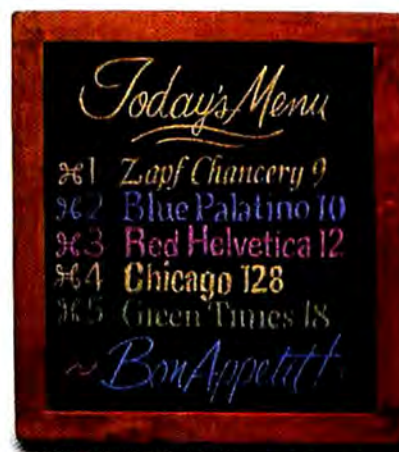 Today's Menu
⌘1 Zapf Chancery 9
⌘2 Blue Palatino 10
⌘3 Red Helvetica 12
⌘4 Chicago 128
⌘5 Green Times 18
~Bon Appetit!